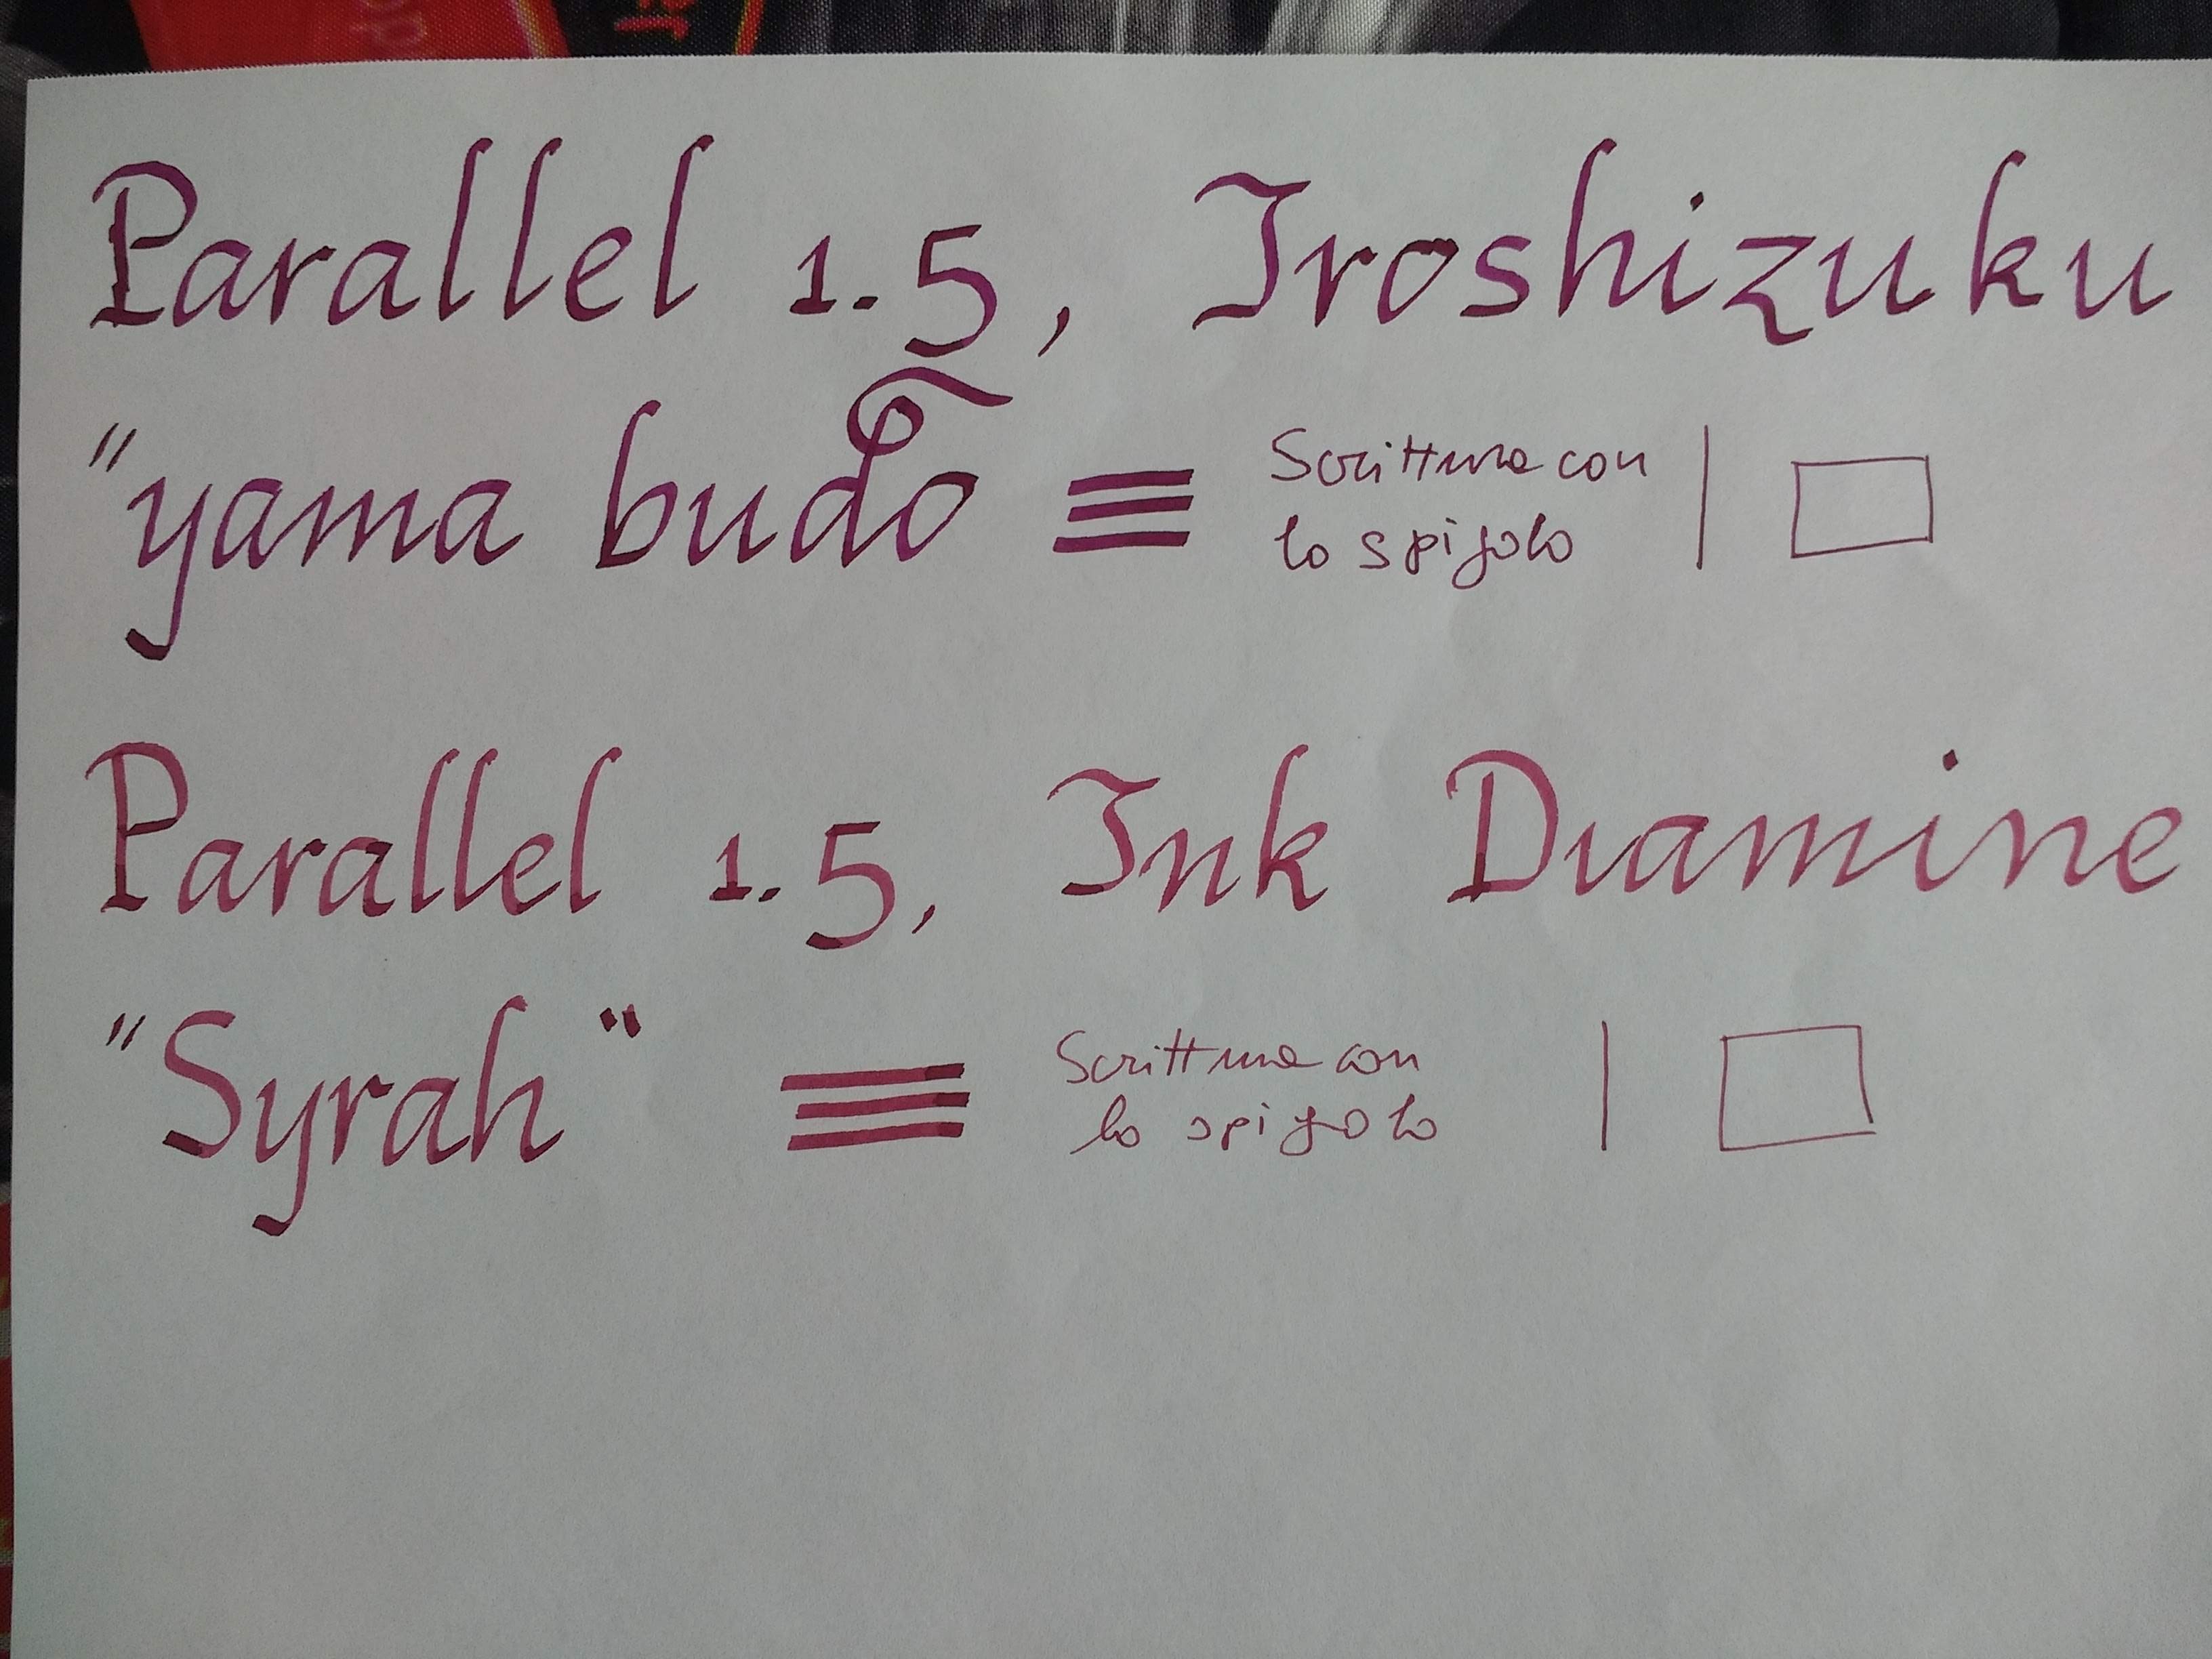 Parallel 1.5, Iroshizuku
"yama budo
Scrittura con
lo spigolo
Parallel 1.5, Ink Dıamine
"Syrah"
Scrittura con
lo spigolo